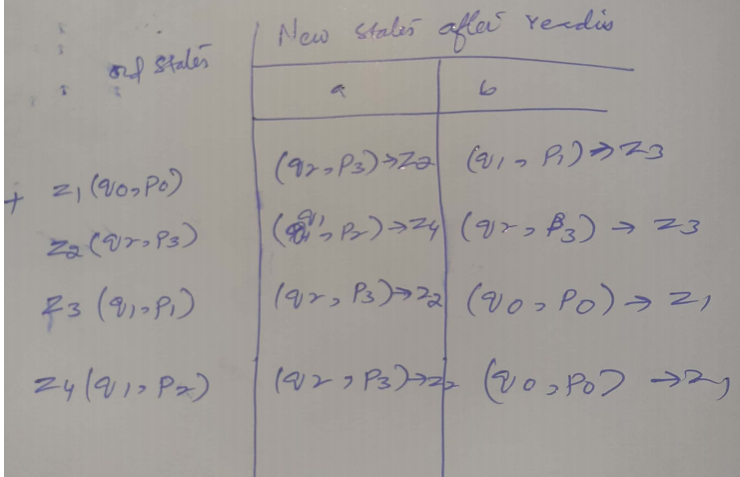 New states after readin
old states
a b
+ z1(q0,p0) (q2,p3)→z2 (q1,p1)→z3
z2(q2,p3) (q1,p2)→z4 (q2,p3)→z3
z3(q1,p1) (q2,p3)→z2 (q0,p0)→z1
z4(q1,p2) (q2,p3)→z2 (q0,p0)→z1